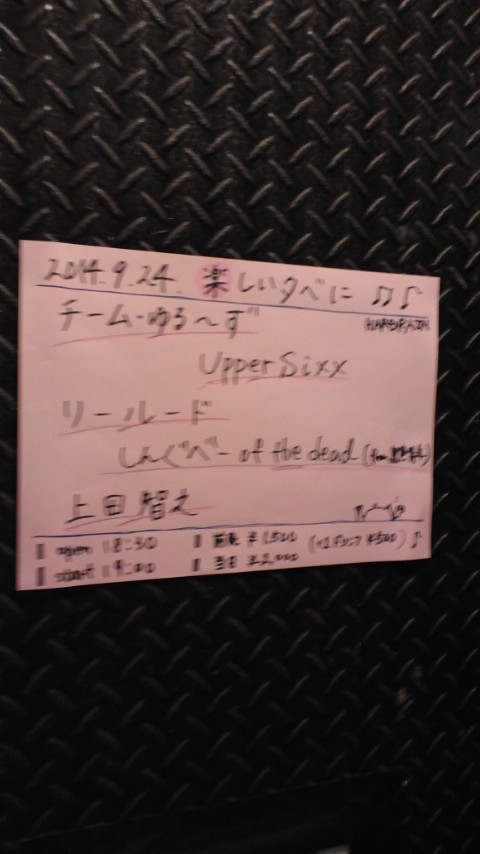 2014.9.24. 楽しい夕べに ♫♪
HARDRAIN
チーム・ゆる〜ず
Upper Sixx
リールード
しんぐべー of the dead (from
上田智之
open 18:30 前売 ¥1,500 (+1ドリンク ¥500) ♪
start 19:00 当日 ¥2,000